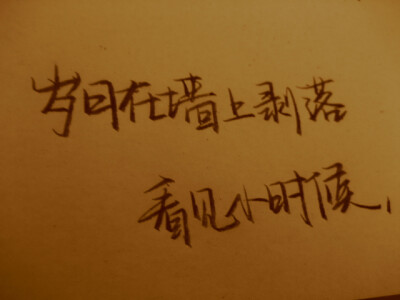 岁月在墙上剥落
看见小时候,